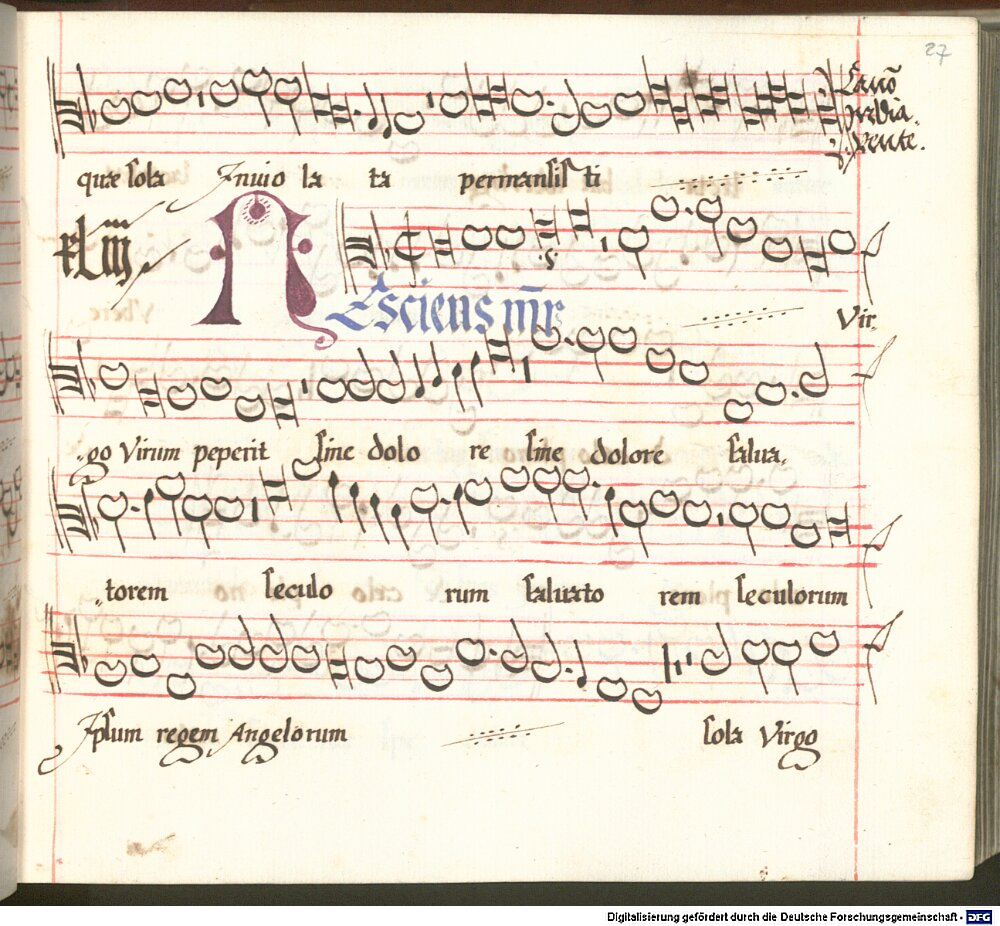 27
quæ sola Inuio la ta permansis ti
Canō
in dia.
pente.
xliiij
NEsciens m̄r Vir.
.go Virum peperit sine dolo re sine dolore salua.
.torem seculo rum saluato rem seculorum
Ipsum regem Angelorum sola Virgo
Digitalisierung gefördert durch die Deutsche Forschungsgemeinschaft - DFG